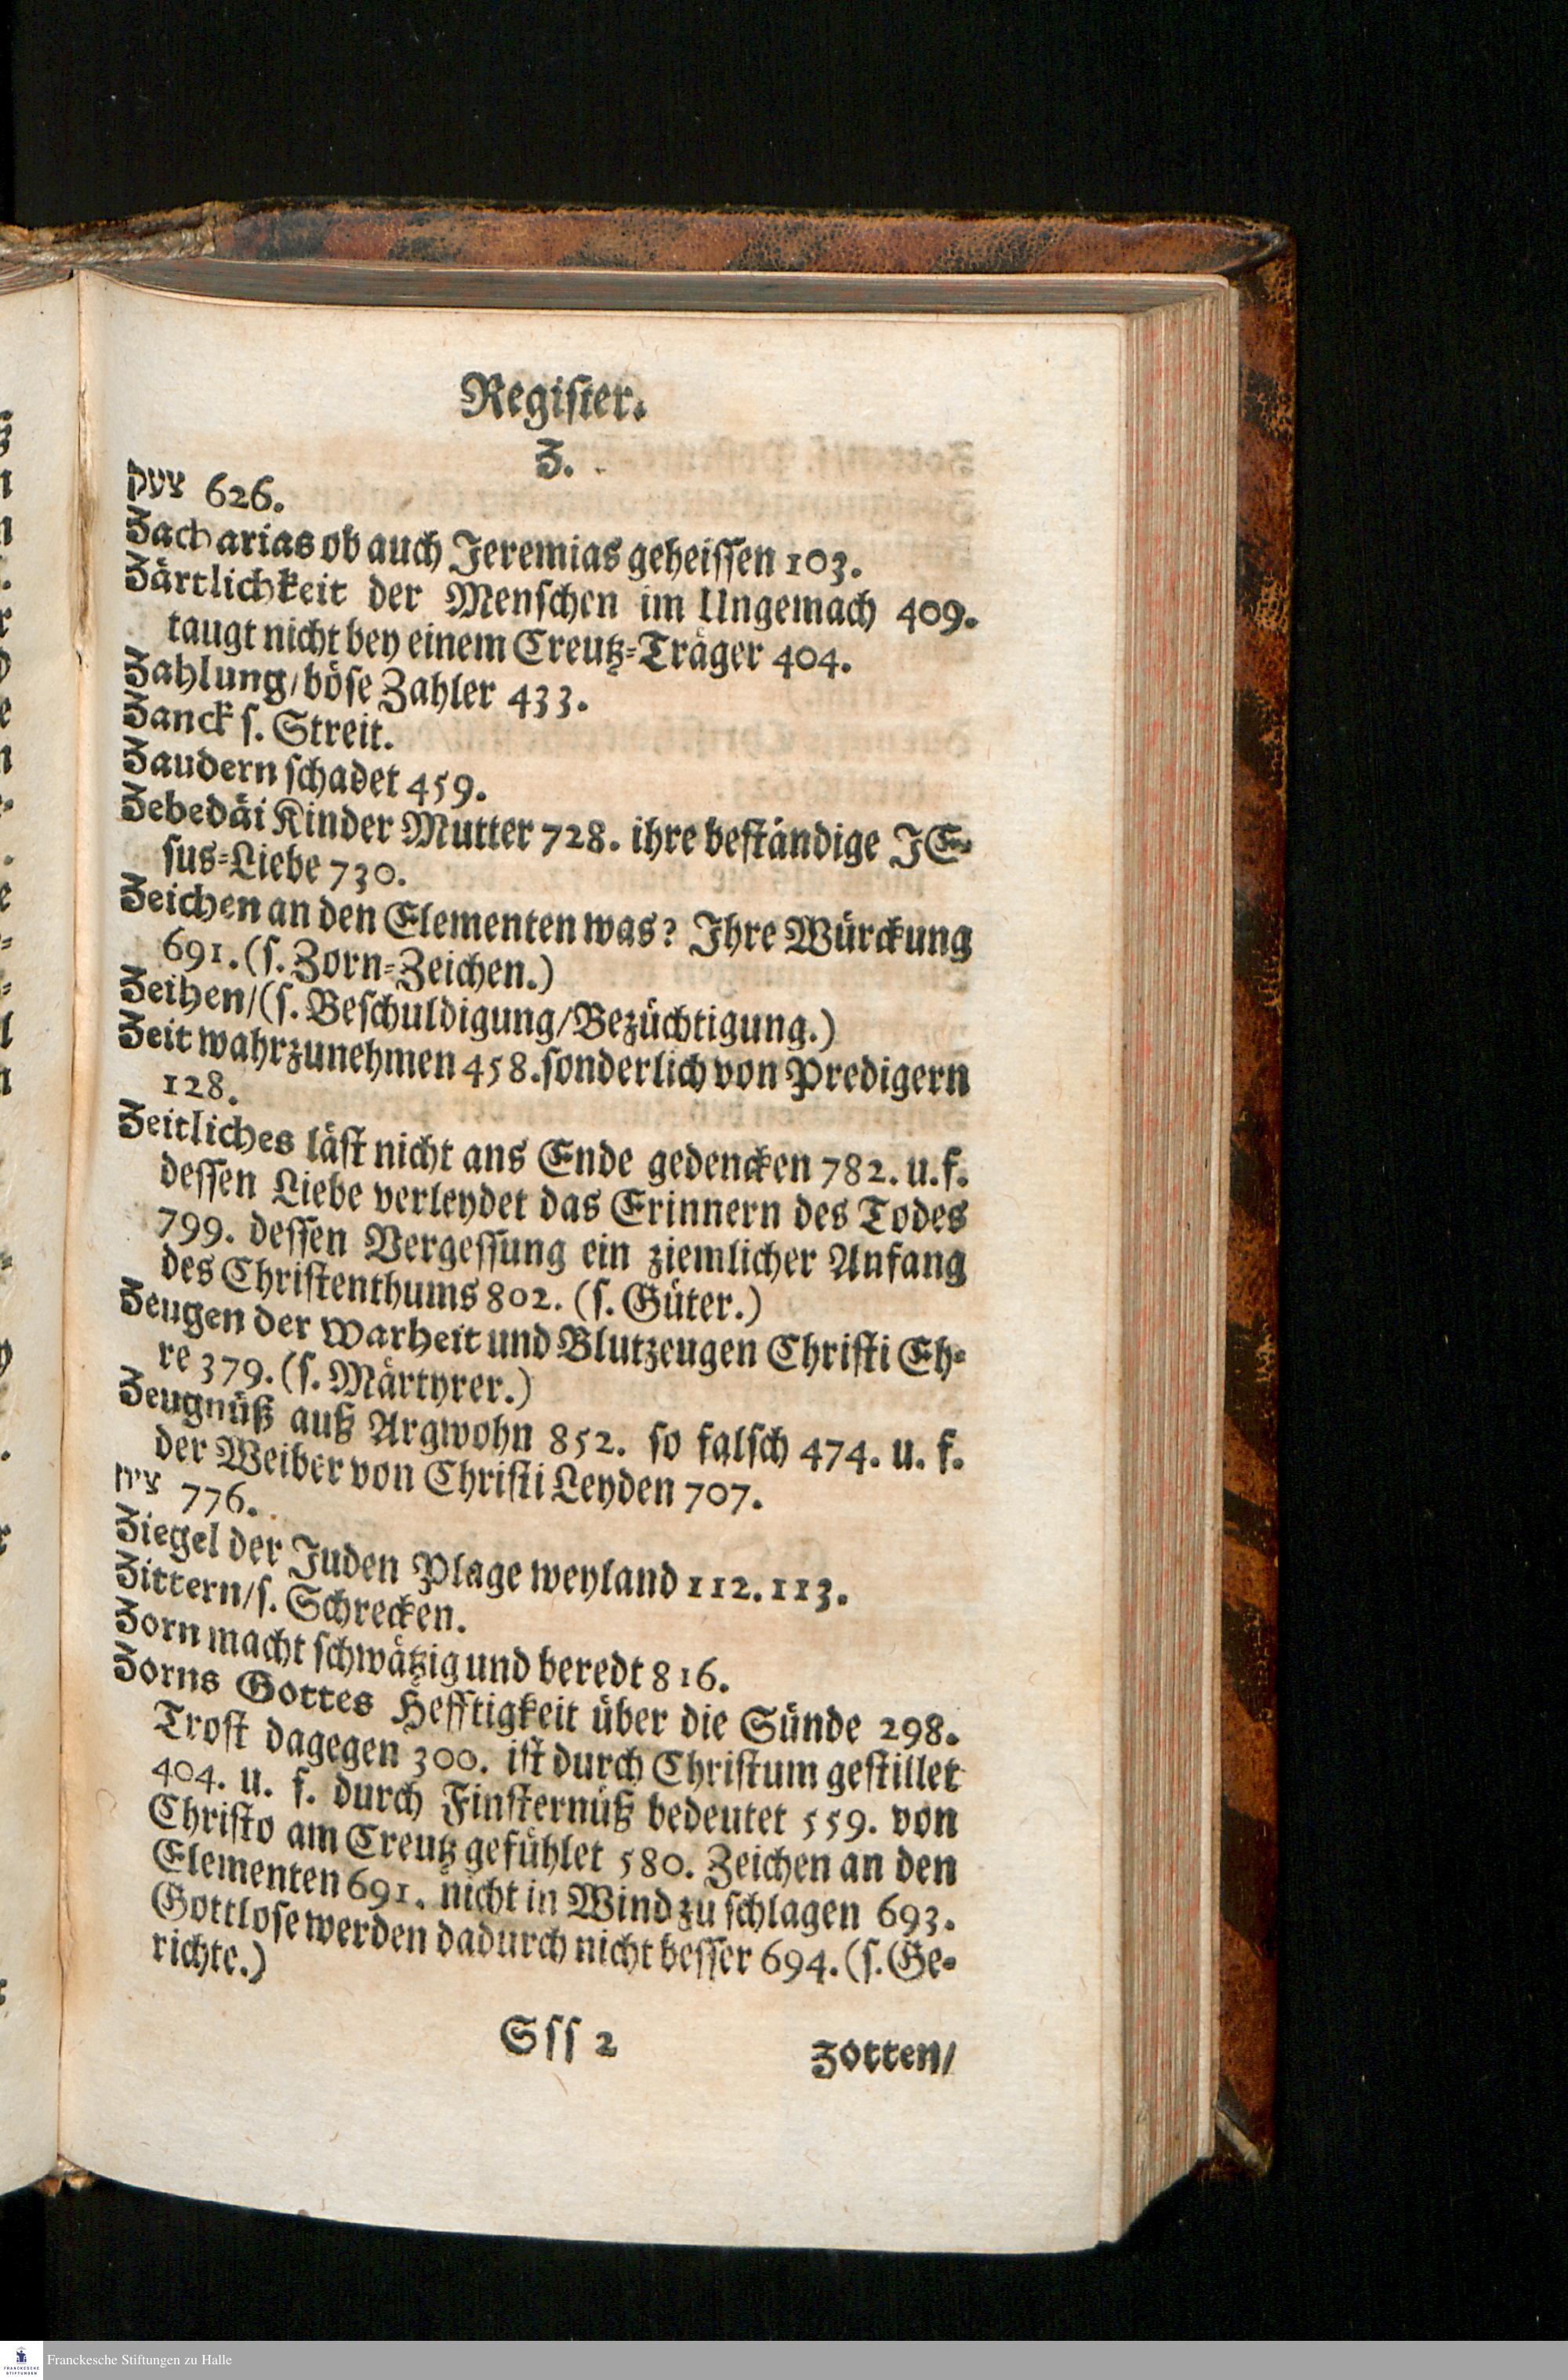 Register.
Z.
צעק 626.
Zacharias ob auch Jeremias geheiſſen 103.
Zärtlichkeit der Menſchen im Ungemach 409.
taugt nicht bey einem Creutz-Träger 404.
Zahlung/ böſe Zahler 433.
Zanck ſ. Streit.
Zaudern ſchadet 459.
Zebedäi Kinder Mutter 728. ihre beſtändige JE-
ſus-Liebe 730.
Zeichen an den Elementen was? Ihre Würckung
691. (ſ. Zorn-Zeichen.)
Zeihen/ (ſ. Beſchuldigung/ Bezüchtigung.)
Zeit wahrzunehmen 458. ſonderlich von Predigern
128.
Zeitliches läſt nicht ans Ende gedencken 782. u. f.
deſſen Liebe verleydet das Erinnern des Todes
799. deſſen Vergeſſung ein ziemlicher Anfang
des Chriſtenthums 802. (ſ. Güter.)
Zeugen der Warheit und Blutzeugen Chriſti Eh-
re 379. (ſ. Märtyrer.)
Zeugnüß auß Argwohn 852. ſo falſch 474. u. f.
der Weiber von Chriſti Leyden 707.
776.
Ziegel der Juden Plage weyland 112. 113.
Zittern/ ſ. Schrecken.
Zorn macht ſchwätzig und beredt 816.
Zorns Gottes Hefftigkeit über die Sünde 298.
Troſt dagegen 300. iſt durch Chriſtum geſtillet
404. u. f. durch Finſternüß bedeutet 559. von
Chriſto am Creutz gefühlet 580. Zeichen an den
Elementen 691. nicht in Wind zu ſchlagen 693.
Gottloſe werden dadurch nicht beſſer 694. (ſ. Ge-
richte.)
Sſſ 2
Zotten/
Franckesche Stiftungen zu Halle
FRANCKESCHE
STIFTUNGEN